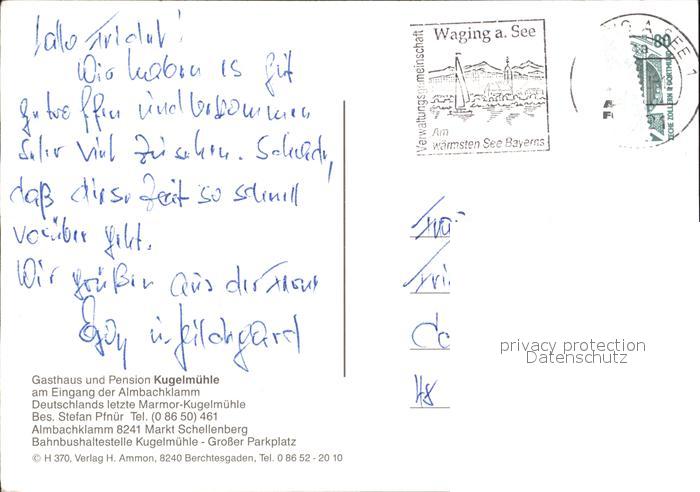 Hallo Fridel!
Wir haben es gut
getroffen und bekommen
sehr viel zu sehen. Schade,
daß diese Zeit so schnell
vorüber geht.
Wir grüßen aus der Ferne
u. Hildegard
Gasthaus und Pension Kugelmühle
am Eingang der Almbachklamm
Deutschlands letzte Marmor-Kugelmühle
Bes. Stefan Pfnür Tel. (0 86 50) 461
Almbachklamm 8241 Markt Schellenberg
Bahnbushaltestelle Kugelmühle - Großer Parkplatz
© H 370, Verlag H. Ammon, 8240 Berchtesgaden, Tel. 0 86 52 - 20 10
Verwaltungsgemeinschaft
Waging a. See
Am
wärmsten See Bayerns
G A. SEE 1
80
ECHE ZOLLERN II DORTMUND
Co
48
privacy protection
Datenschutz